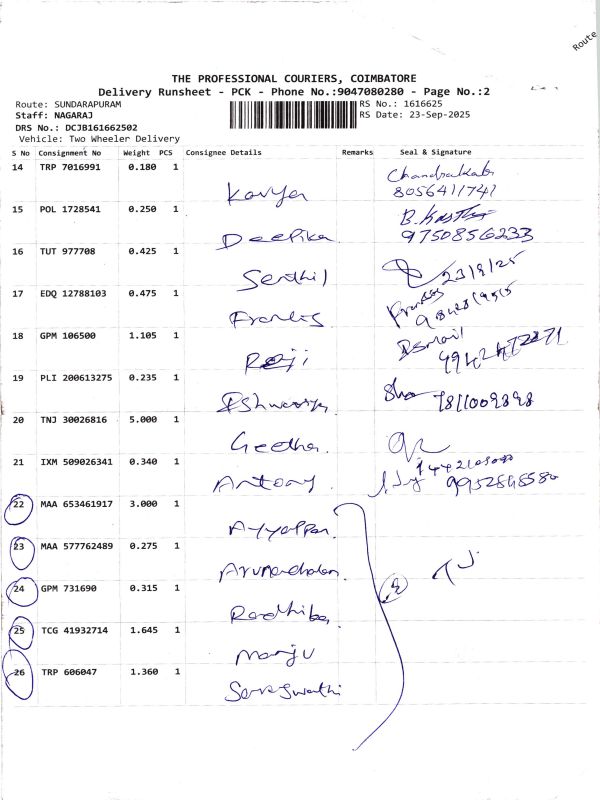 Route
THE PROFESSIONAL COURIERS, COIMBATORE
Delivery Runsheet - PCK - Phone No.:9047080280 - Page No.:2
Route: SUNDARAPURAM RS No.: 1616625
Staff: NAGARAJ RS Date: 23-Sep-2025
DRS No.: DCJB161662502
Vehicle: Two Wheeler Delivery
S No Consignment No Weight PCS Consignee Details Remarks Seal & Signature
14 TRP 7016991 0.180 1 Kavya
8056411741
15 POL 1728541 0.250 1 Deepika
9750856233
16 TUT 977708 0.425 1 Senthil 23/9/25
17 EDQ 12788103 0.475 1 Francis
18 GPM 106500 1.105 1 Roji Ismail
19 PLI 200613275 0.235 1 Ishwarya
20 TNJ 30026816 5.000 1 Geetha
21 IXM 509026341 0.340 1 Antony
22 MAA 653461917 3.000 1 Ayyappan
23 MAA 577762489 0.275 1 Arunachalam
24 GPM 731690 0.315 1 Radhika
25 TCG 41932714 1.645 1 Manju
26 TRP 606047 1.360 1 Saraswathi